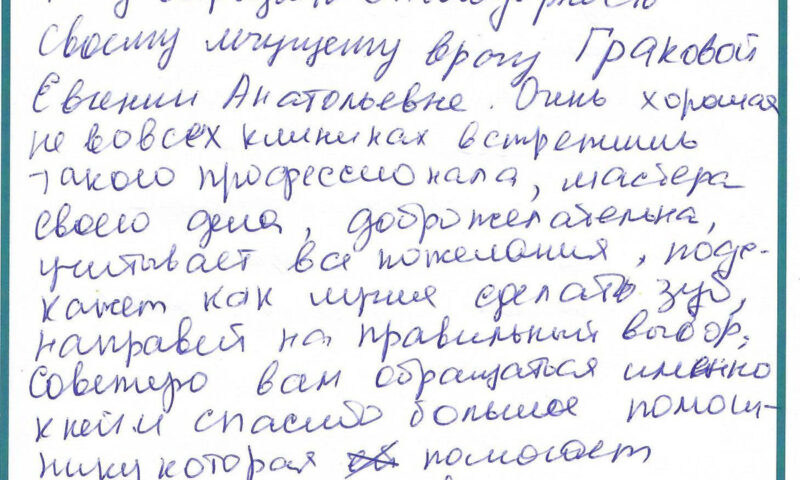 благодарность
своему лучшему врачу Граковой
Евгении Анатольевне. Очень хорошая
не во всех клиниках встретишь
такого профессионала, мастера
своего дела, доброжелательна,
учитывает все пожелания, подс-
кажет как лучше сделать зуб,
направей на правильный выбор,
Советую вам обращаться именно
к ней и спасибо большое помощ-
нику которая помогает